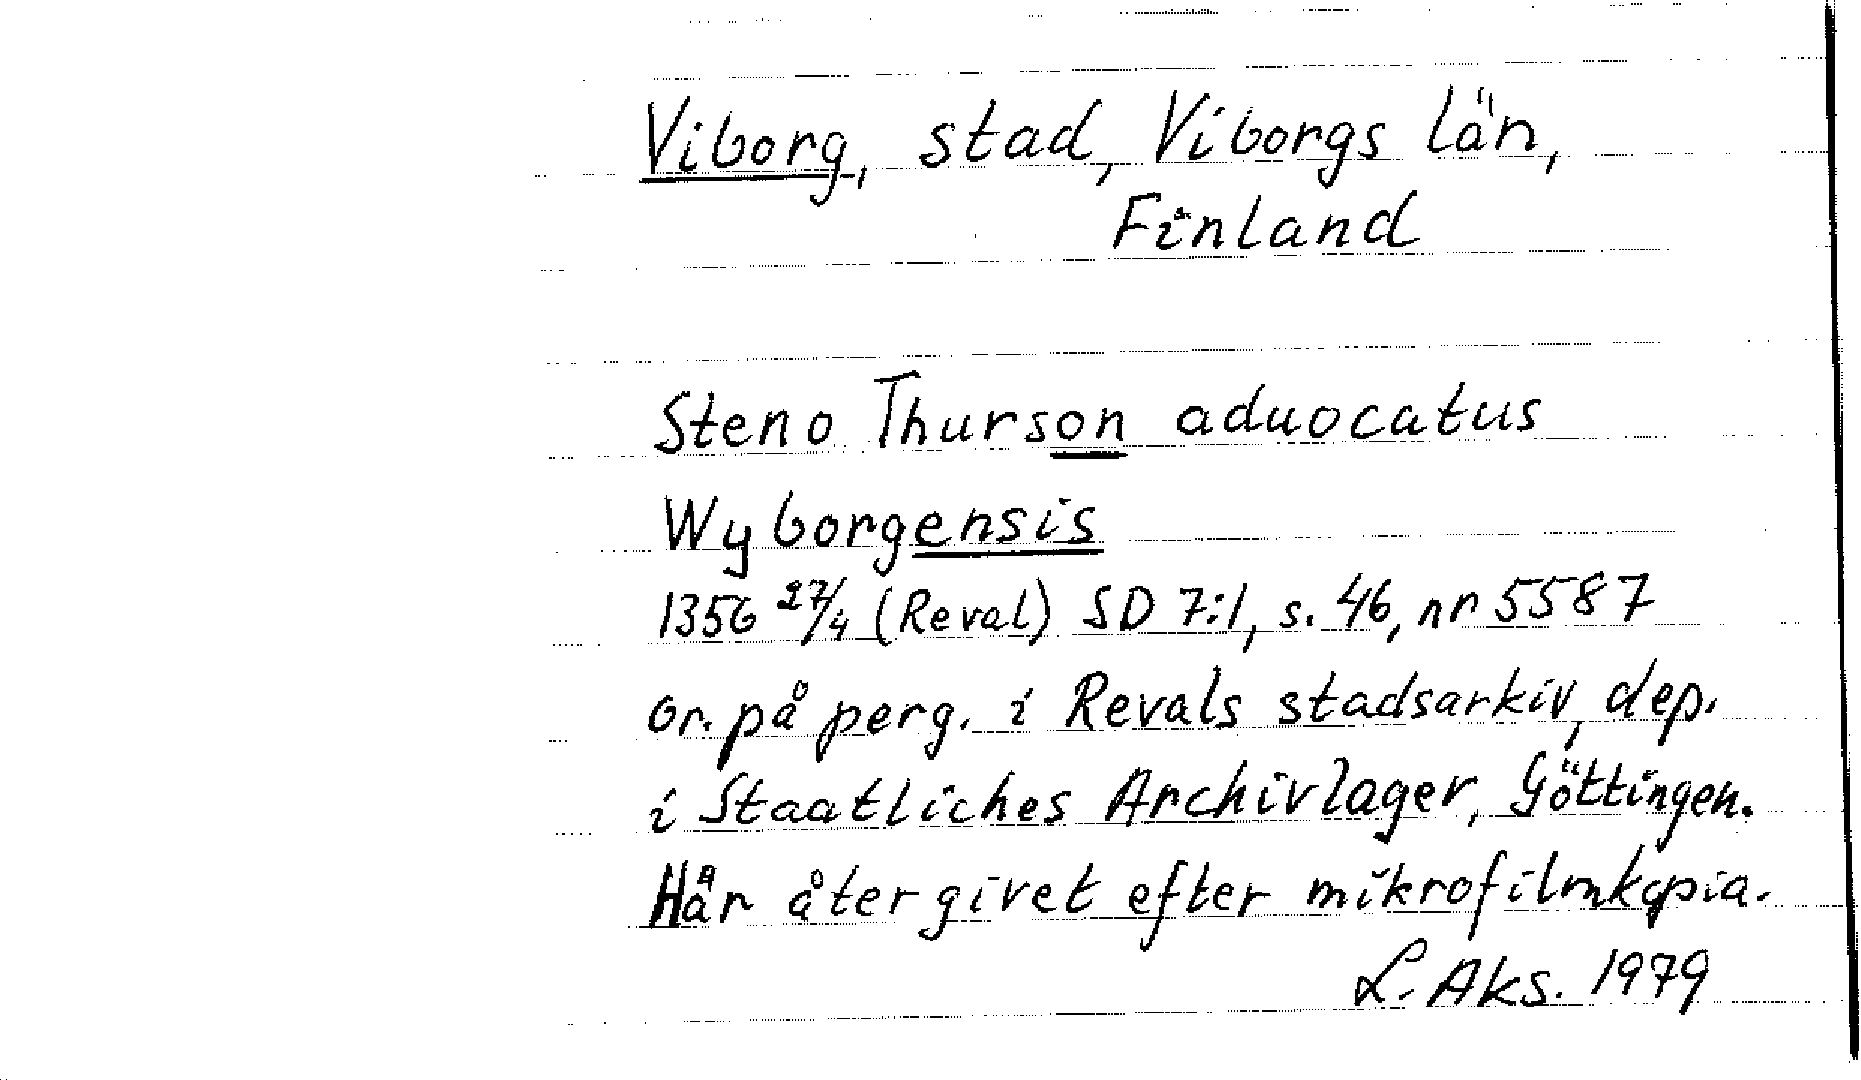 Viborg, stad, Viborgs län,
Finland
Steno Thurson aduocatus
Wyborgensis
1356 27/4 (Reval) SD 7:1, s. 46, nr 5587
or. på perg. i Revals stadsarkiv, dep.
i Staatliches Archivlager, Göttingen.
Här återgivet efter mikrofilmkopia.
L. Aks. 1979